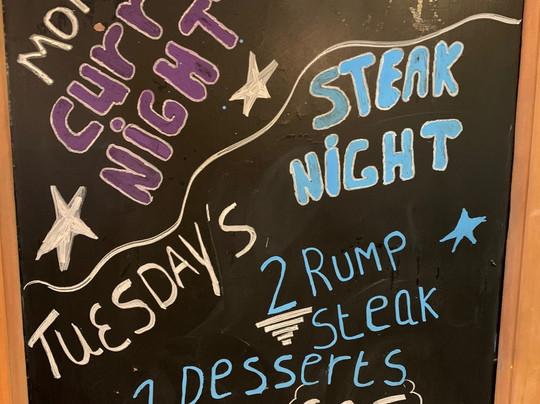 CURRY
NIGHT
STEAK
NIGHT
TUESDAY'S
2 RUMP
Steak
Desserts